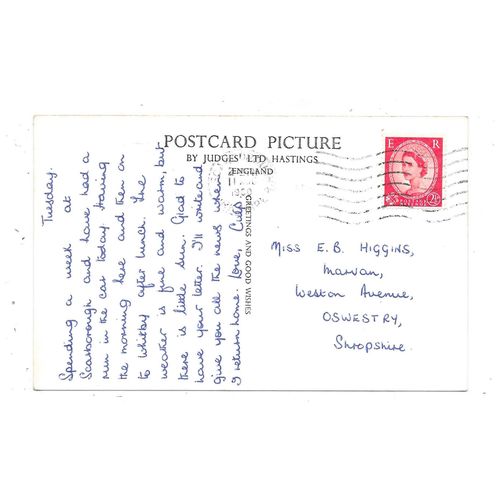 POSTCARD PICTURE
BY JUDGES' LTD HASTINGS
ENGLAND
GREETINGS AND GOOD WISHES
Tuesday.
Spending a week at
Scarborough and have had a
run in the car today. Having
the morning here and then on
to Whitby after lunch. The
weather is fine and warm, but
there is little sun. Glad to
have your letter. I'll write and
give you all the news when
I return home. Love,
E R
2½
Miss E. B. HIGGINS,
Marvan,
Weston Avenue,
OSWESTRY,
Shropshire.